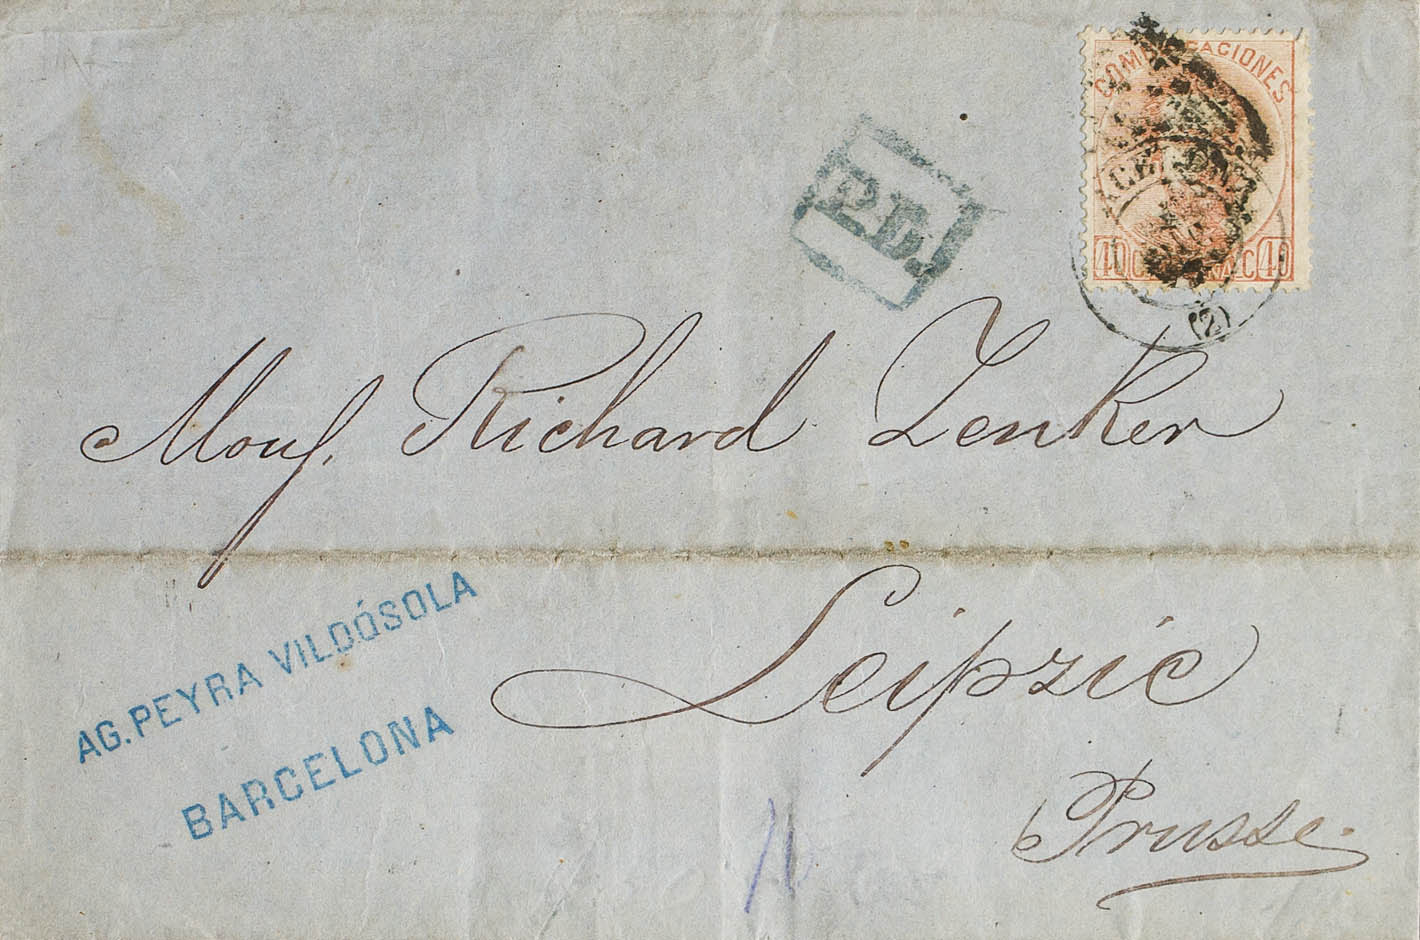 COMUNICACIONES
40 C 40
(2)
P.D.
Mons. Richard Zenker
Leipzic
Prusse.
AG. PEYRA VILDÓSOLA
BARCELONA